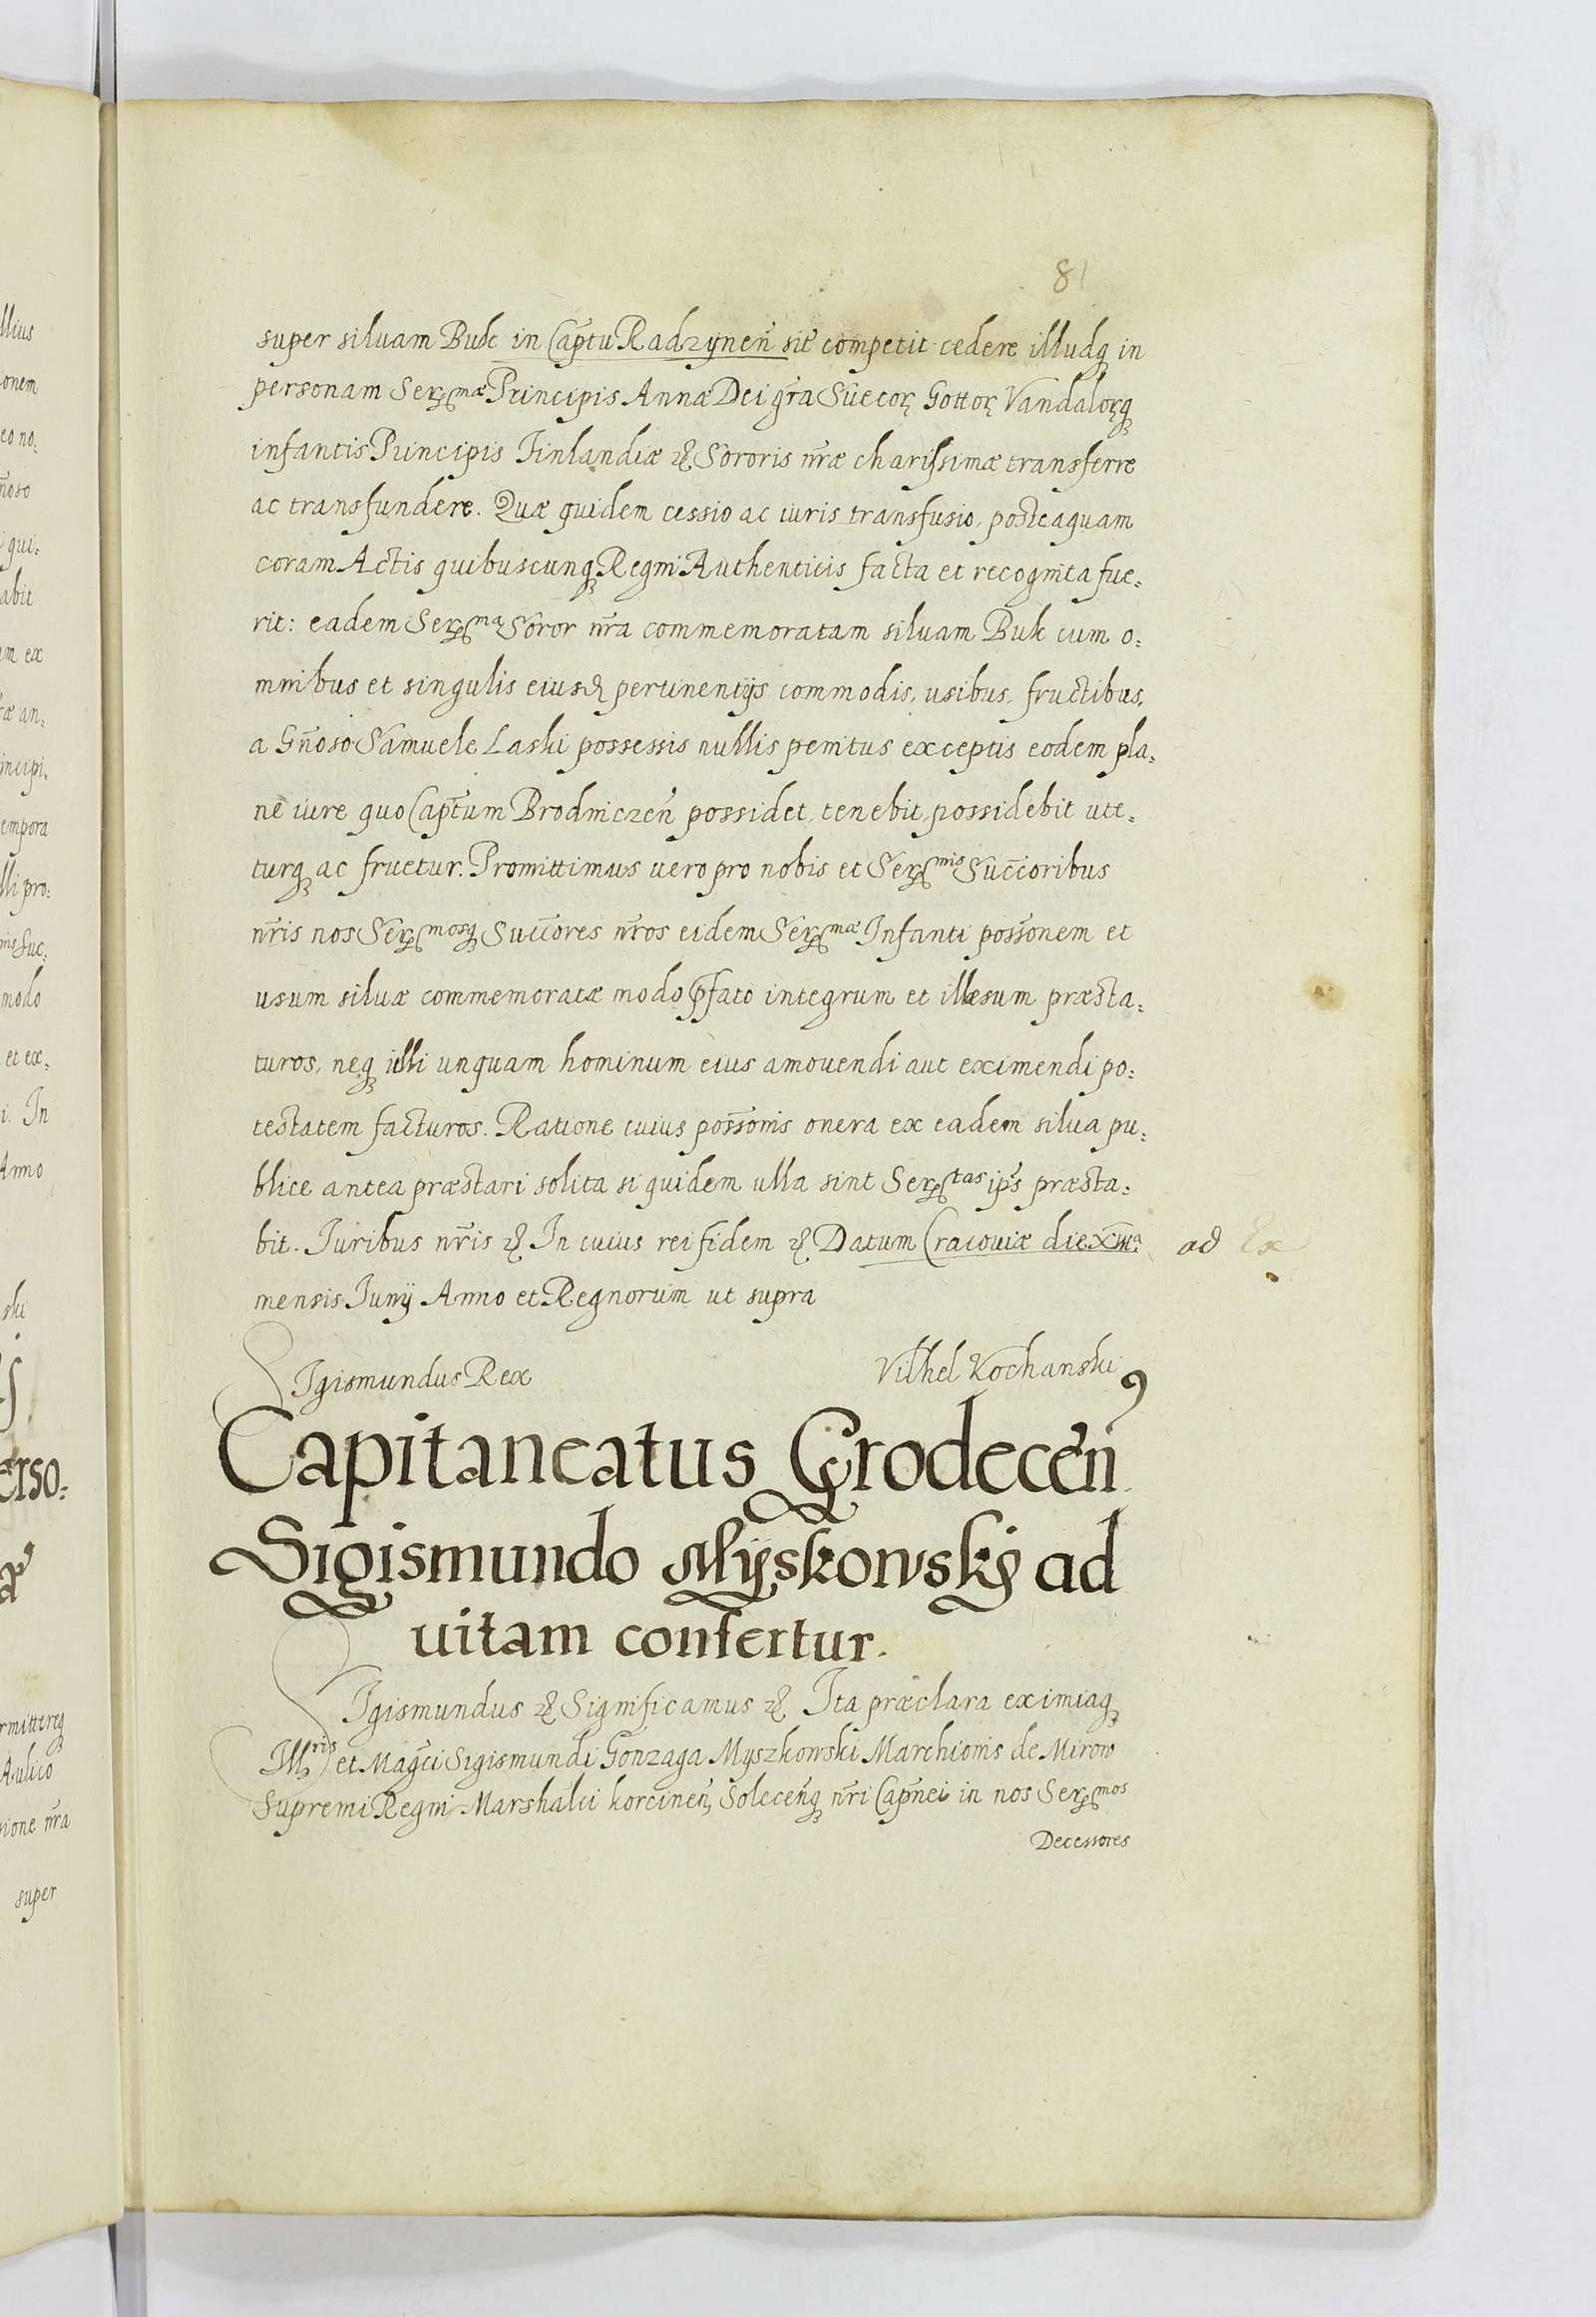 81
super siluam Buk in Captu Radzyneñ sit competit cedere illudq in
personam Serₘmæ Principis Annæ Dei gr̃a Suecoꝝ Gottoꝝ Vandaloꝝq
infantis Principis Finlandiæ ꝛc Sororis nr̃æ charissimæ transferre
ac transfundere. Quæ quidem cessio ac iuris transfusio, posteaquam
coram Actis quibuscunqꝫ Regni Authenticis facta et recognita fue⸗
rit: eadem Serma Soror nr̃a commemoratam siluam Buk cum o⸗
mnibus et singulis eiusd pertinentijs commodis, usibus, fructibus,
a Gñoso Samuele Laski possessis nullis penitus exceptis eodem pla⸗
ne iure quo Captum Brodniczeñ possidet, tenebit, possidebit ute⸗
turqꝫ ac fruetur. Promittimus uero pro nobis et Sermis Succoribus
nr̃is nos Sermosqꝫ Succores nr̃os eidem Sermæ Infanti poss̃onem et
usum siluæ commemoratæ modo p̃fato integrum et illæsum præsta⸗
turos, neqꝫ illi unquam hominum eius amouendi aut eximendi po⸗
testatem facturos. Ratione cuius poss̃onis onera ex eadem silua pu⸗
blice antea præstari solita siquidem ulla sint Sertas ip̃s præsta⸗
bit. Iuribus nr̃is ꝛc In cuius rei fidem ꝛc Datum Cracouiæ die
ad Ex
mensis Iunij Anno et Regnorum ut supra
Sigismundus Rex Vilhel Kochanski
Capitaneatus Grodeceñ
Sigismundo Myskowsky ad
uitam confertur.
Sigismundus ꝛc Significamus ꝛc Ita præclara eximiaqꝫ
Illris et Magci Sigismundi Gonzaga Myszkowski Marchionis de Mirow
Supremi Regni Marshalci korcineñ, Soleceñqꝫ nr̃i Capnei in nos Sermos
Decessores